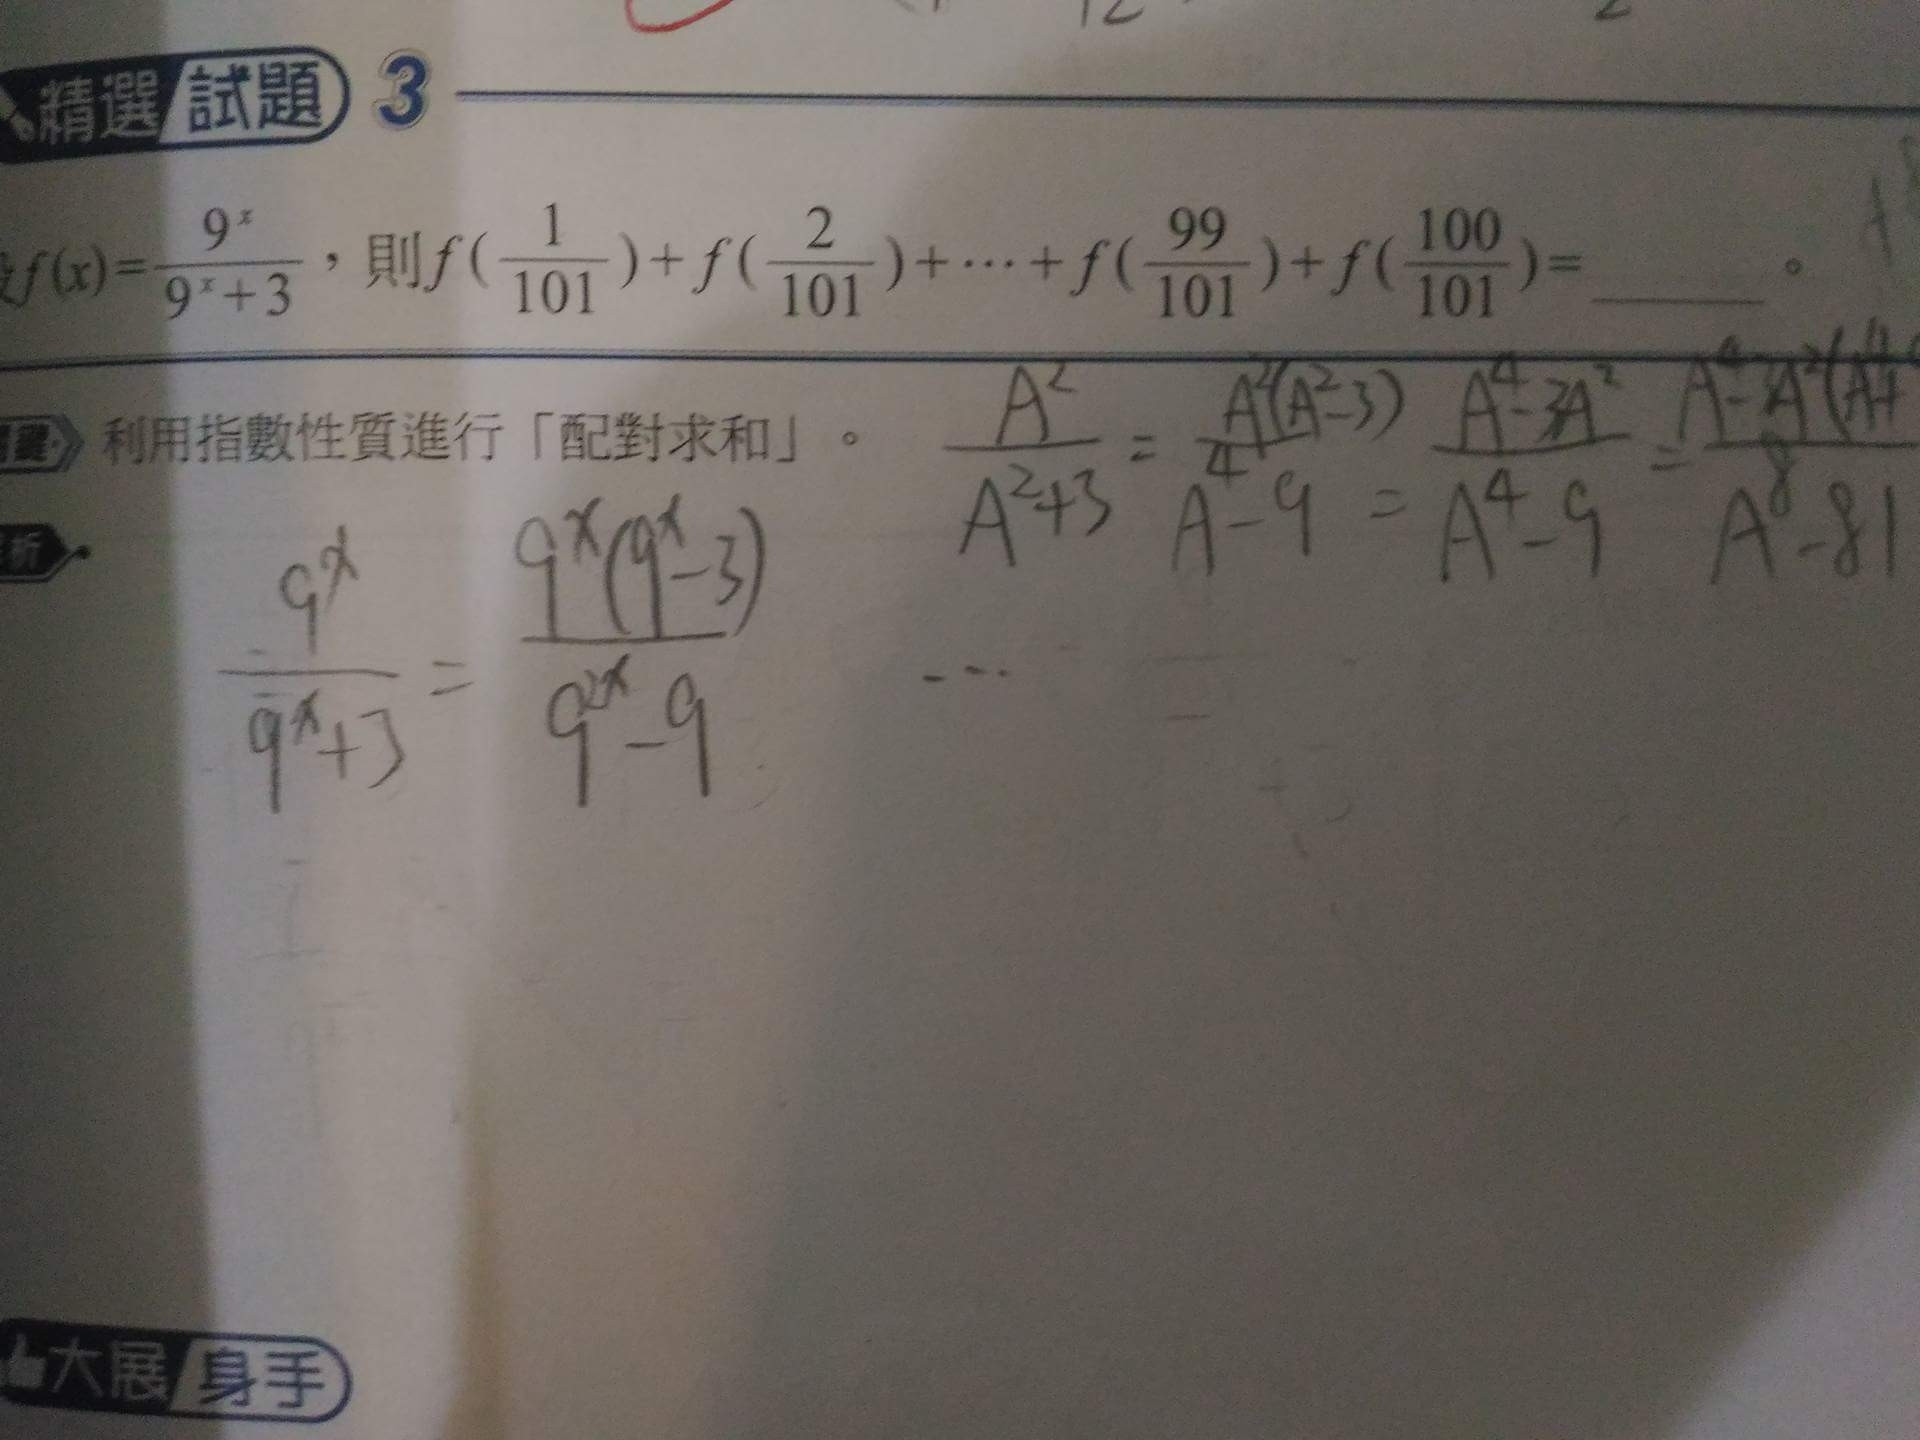 12 2
精選 試題 3
f(x)=9^x/(9^x+3)，則f(1/101)+f(2/101)+⋯+f(99/101)+f(100/101)=______。
利用指數性質進行「配對求和」。 A²/(A²+3) = A²(A²-3)/(A⁴-9) = (A⁴-3A²)/(A⁴-9) = A⁸-81
析
9^x/(9^x+3) = 9^x(9^x-3)/(9^2x-9) ...
大展 身手